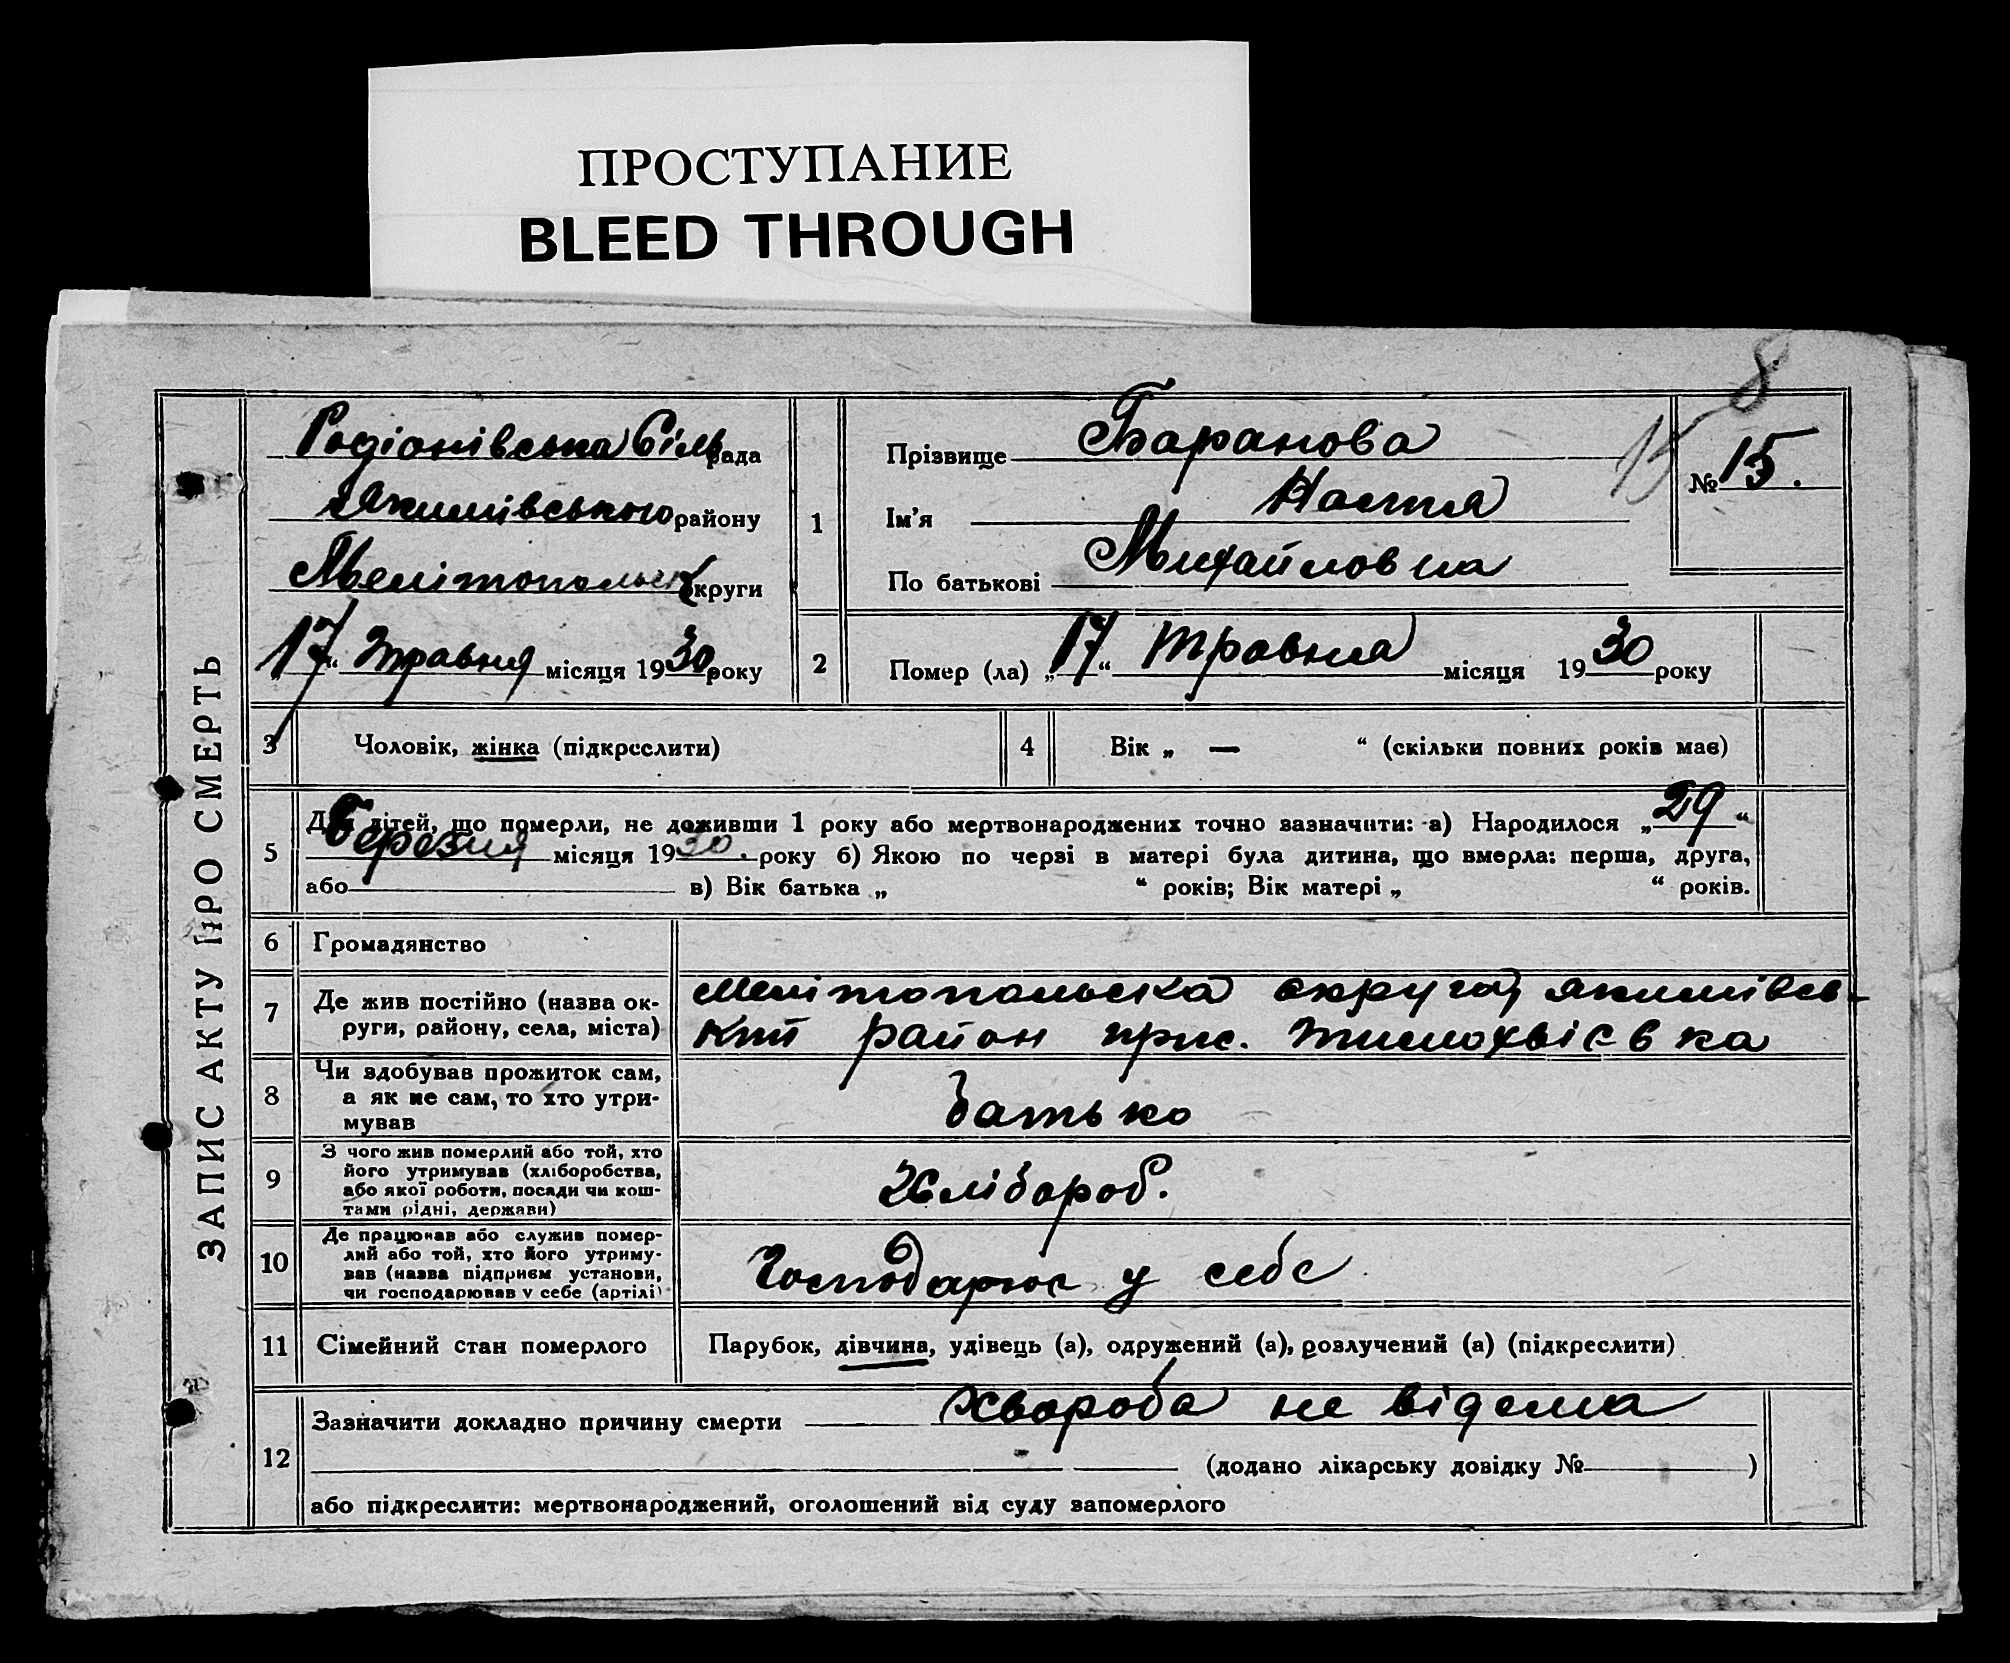 ПРОСТУПАНИЕ
BLEED THROUGH
8
ЗАПИС АКТУ ПРО СМЕРТЬ
Родіонівська Сільрада
Якимівського району
Мелітопольськ округи
17 “ травня місяця 1930 року
1
Прізвище Баранова
Ім’я Настя
По батькові Михайловна
15
№ 15.
2
Помер (ла) „17“ травня місяця 1930 року
3 Чоловік, жінка (підкреслити)
4 Вік „ — “ (скільки повних років має)
5 Для дітей, що померли, не доживши 1 року або мертвонароджених точно зазначити: а) Народилося „29“
Березня місяця 1930. року б) Якою по черві в матері була дитина, що вмерла: перша, друга,
або в) Вік батька „ “ років; Вік матері „ “ років.
6 Громадянство
7 Де жив постійно (назва ок-
руги, району, села, міста)
Мелітопольська округа, якимівсь-
кий район прис.
8 Чи здобував прожиток сам,
а як не сам, то хто утри-
мував
батько
9 З чого жив померлий або той, хто
його утримував (хліборобства,
або якої роботи, посади чи кош-
тами рідні, держави)
Хлібороб.
10 Де працював або служив помер-
лий або той, хто його утриму-
вав (назва підприєм установи,
чи господарював у себе (артілі)
Господарює у себе
11 Сімейний стан померлого
Парубок, дівчина, удівець (а), одружений (а), розлучений (а) (підкреслити)
12 Зазначити докладно причину смерти хвороба не відома
(додано лікарську довідку № )
або підкреслити: мертвонароджений, оголошений від суду запомерлого